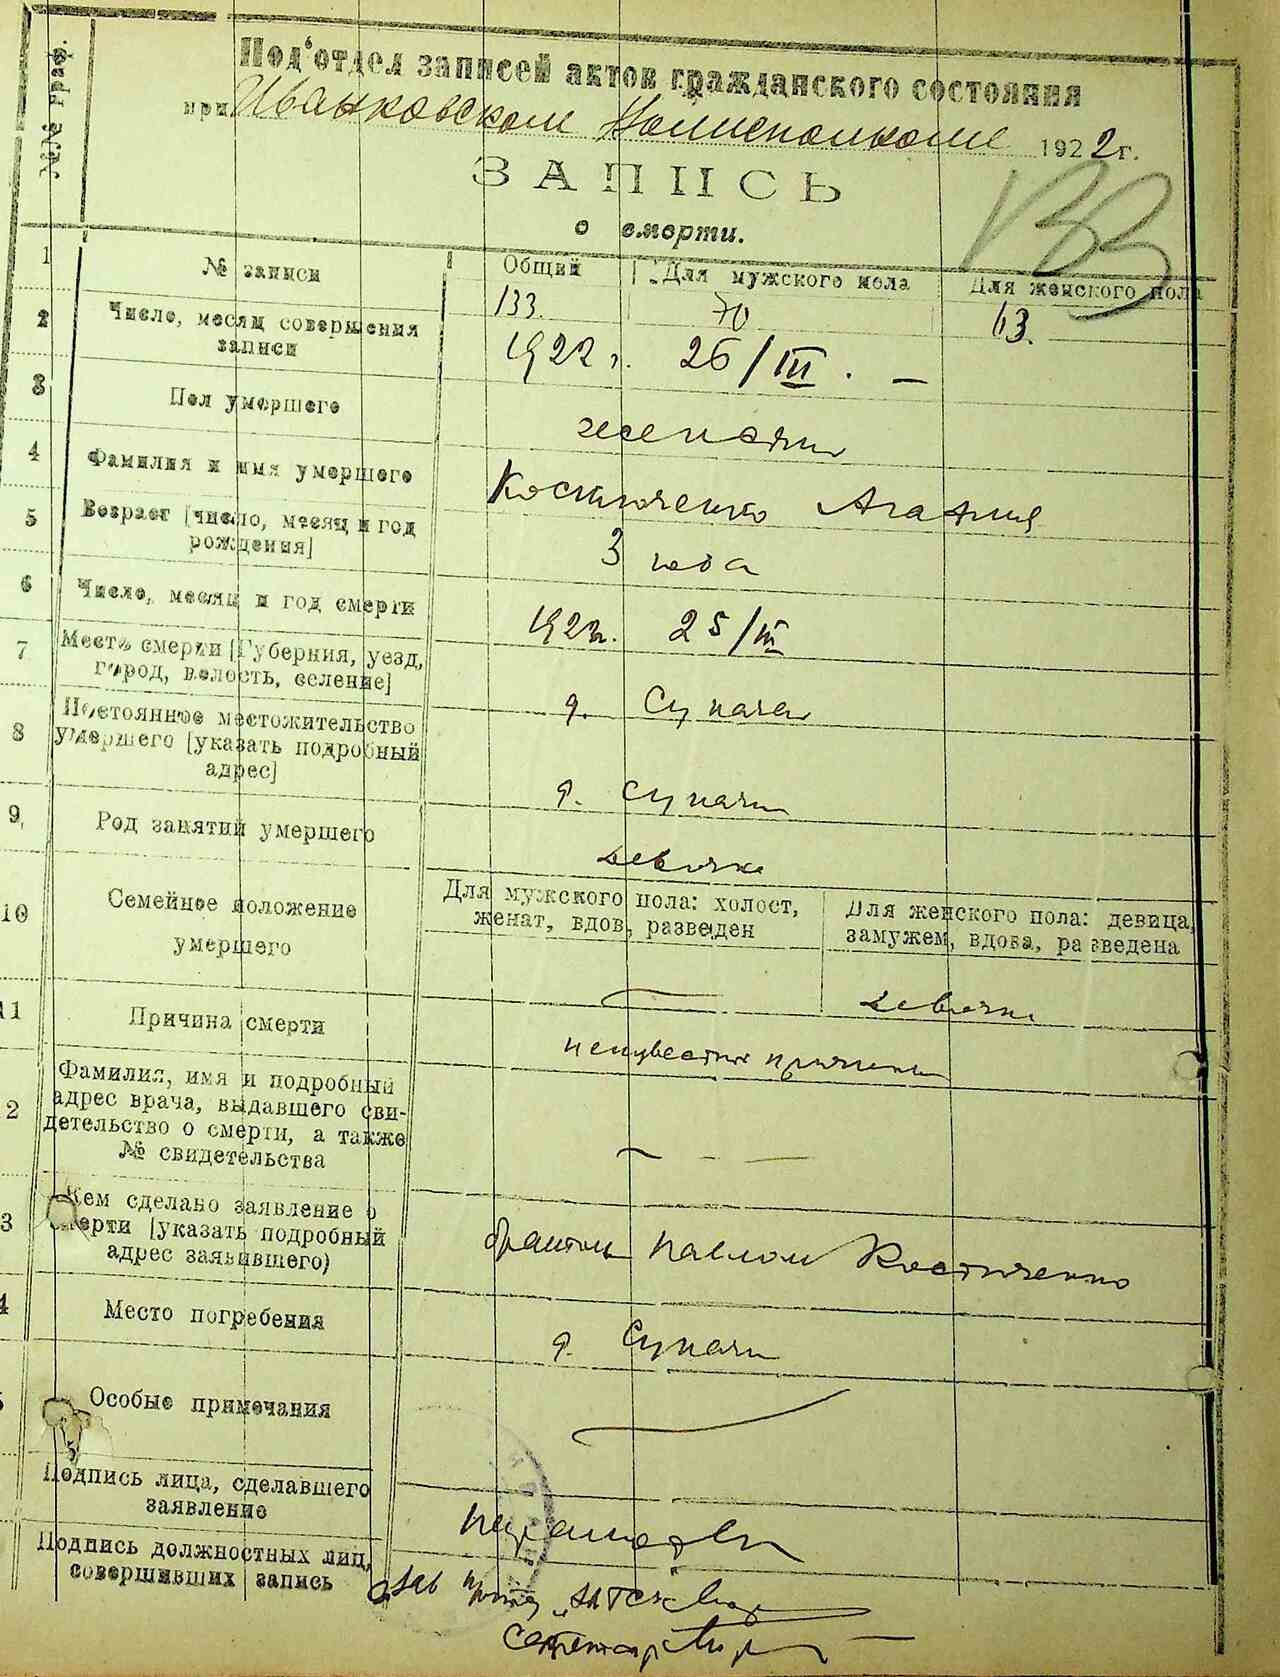 №№ граф.
Под'отдел записей актов гражданского состояния
при Иванковском Волисполкоме 1922 г.
ЗАПИСЬ
о смерти.
133
1
№ записи
Общий
Для мужского пола
Для женского пола
133.
70
63.
2
Число, месяц совершения
записи
1922 г. 26/III. —
3
Пол умершего
женский
4
Фамилия и имя умершего
Костюченко Агафия
5
Возраст [число, месяц и год
рождения]
3 года
6
Число, месяц и год смерти
1922г. 25/III
7
Место смерти [Губерния, уезд,
город, волость, селение]
д. Супачи
8
Постоянное местожительство
умершего [указать подробный
адрес]
д. Супачи
9
Род занятий умершего
девочка
10
Семейное положение
умершего
Для мужского пола: холост,
женат, вдов, разведен
Для женского пола: девица,
замужем, вдова, разведена
—
девочка
11
Причина смерти
неизвестная причина
2
Фамилия, имя и подробный
адрес врача, выдавшего сви-
детельство о смерти, а также
№ свидетельства
— - —
3
Кем сделано заявление о
смерти [указать подробный
адрес заявившего)
братом Павлом Костюченко
4
Место погребения
д. Супачи
5
Особые примечания
Подпись лица, сделавшего
заявление
неграмотен
Подпись должностных лиц,
совершивших запись
Зав. "ЗАГСА"
Секретарь